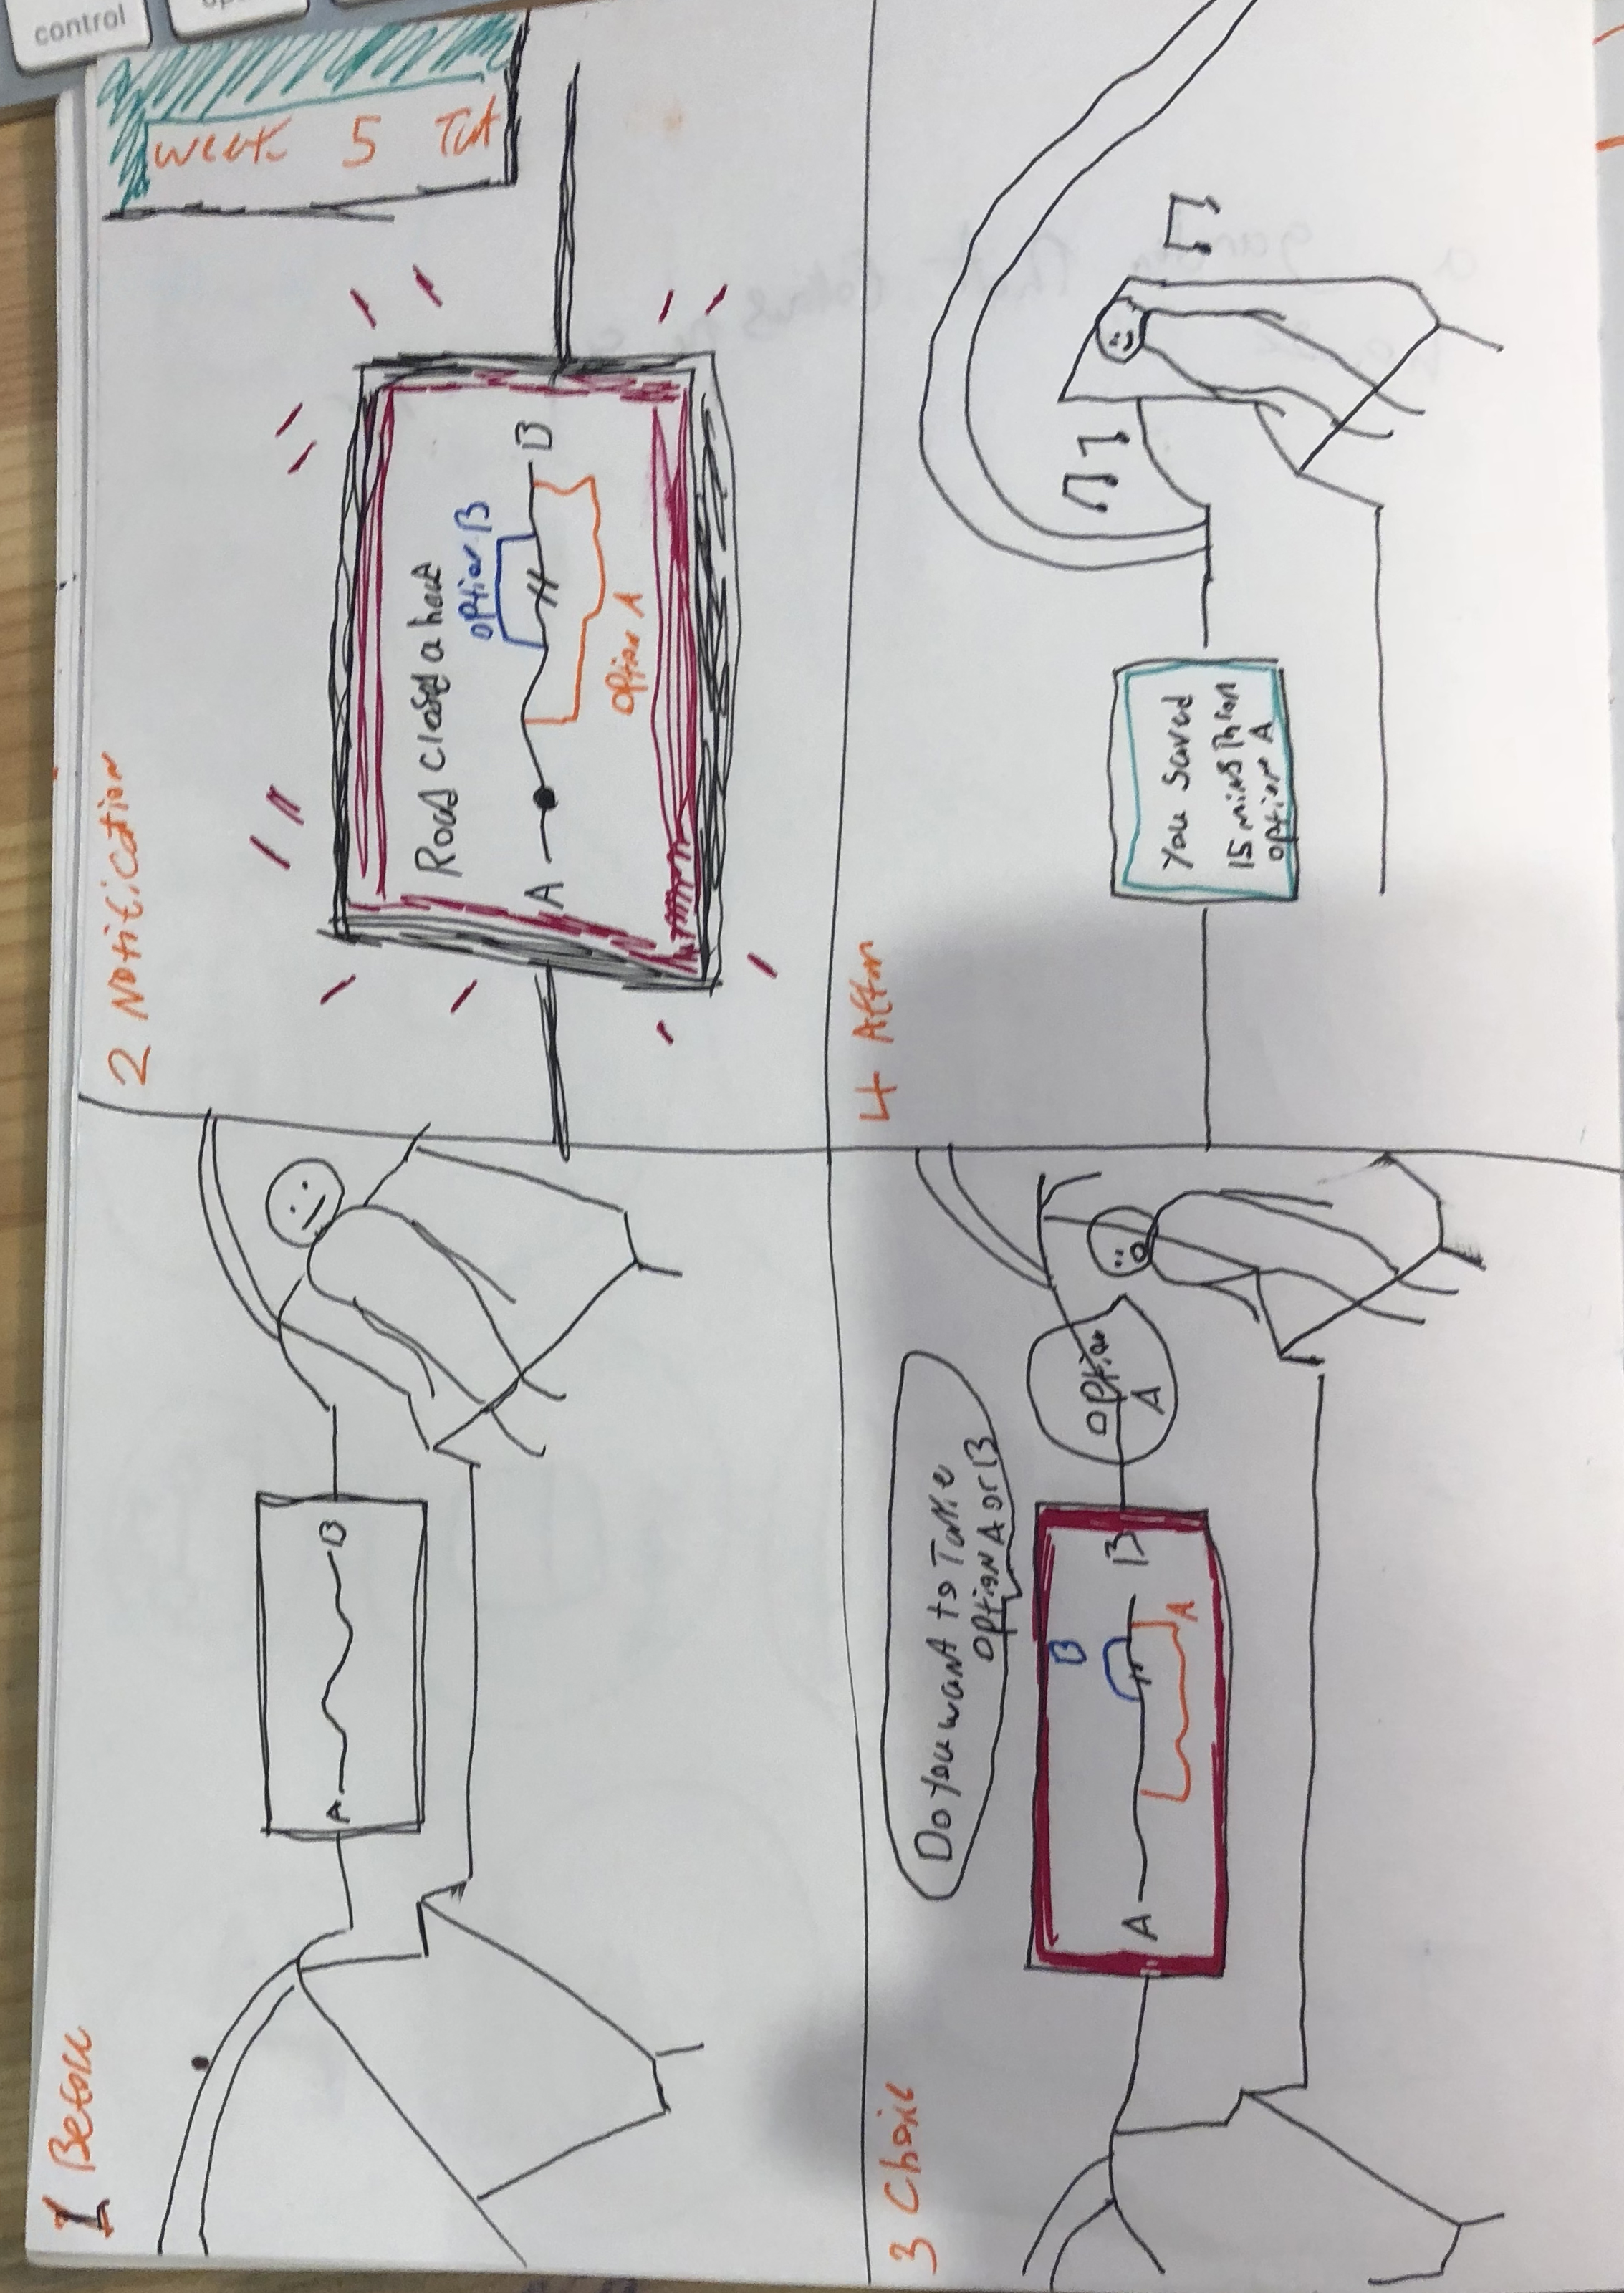 control
week 5 Tut
1 Before
A
B
2 Notification
Road closed ahead
Option B
A
B
Option A
3 Choice
Do you want to Take
option A or B
B
A
B
A
option
A
4 After
You saved
15 mins Thron
option A